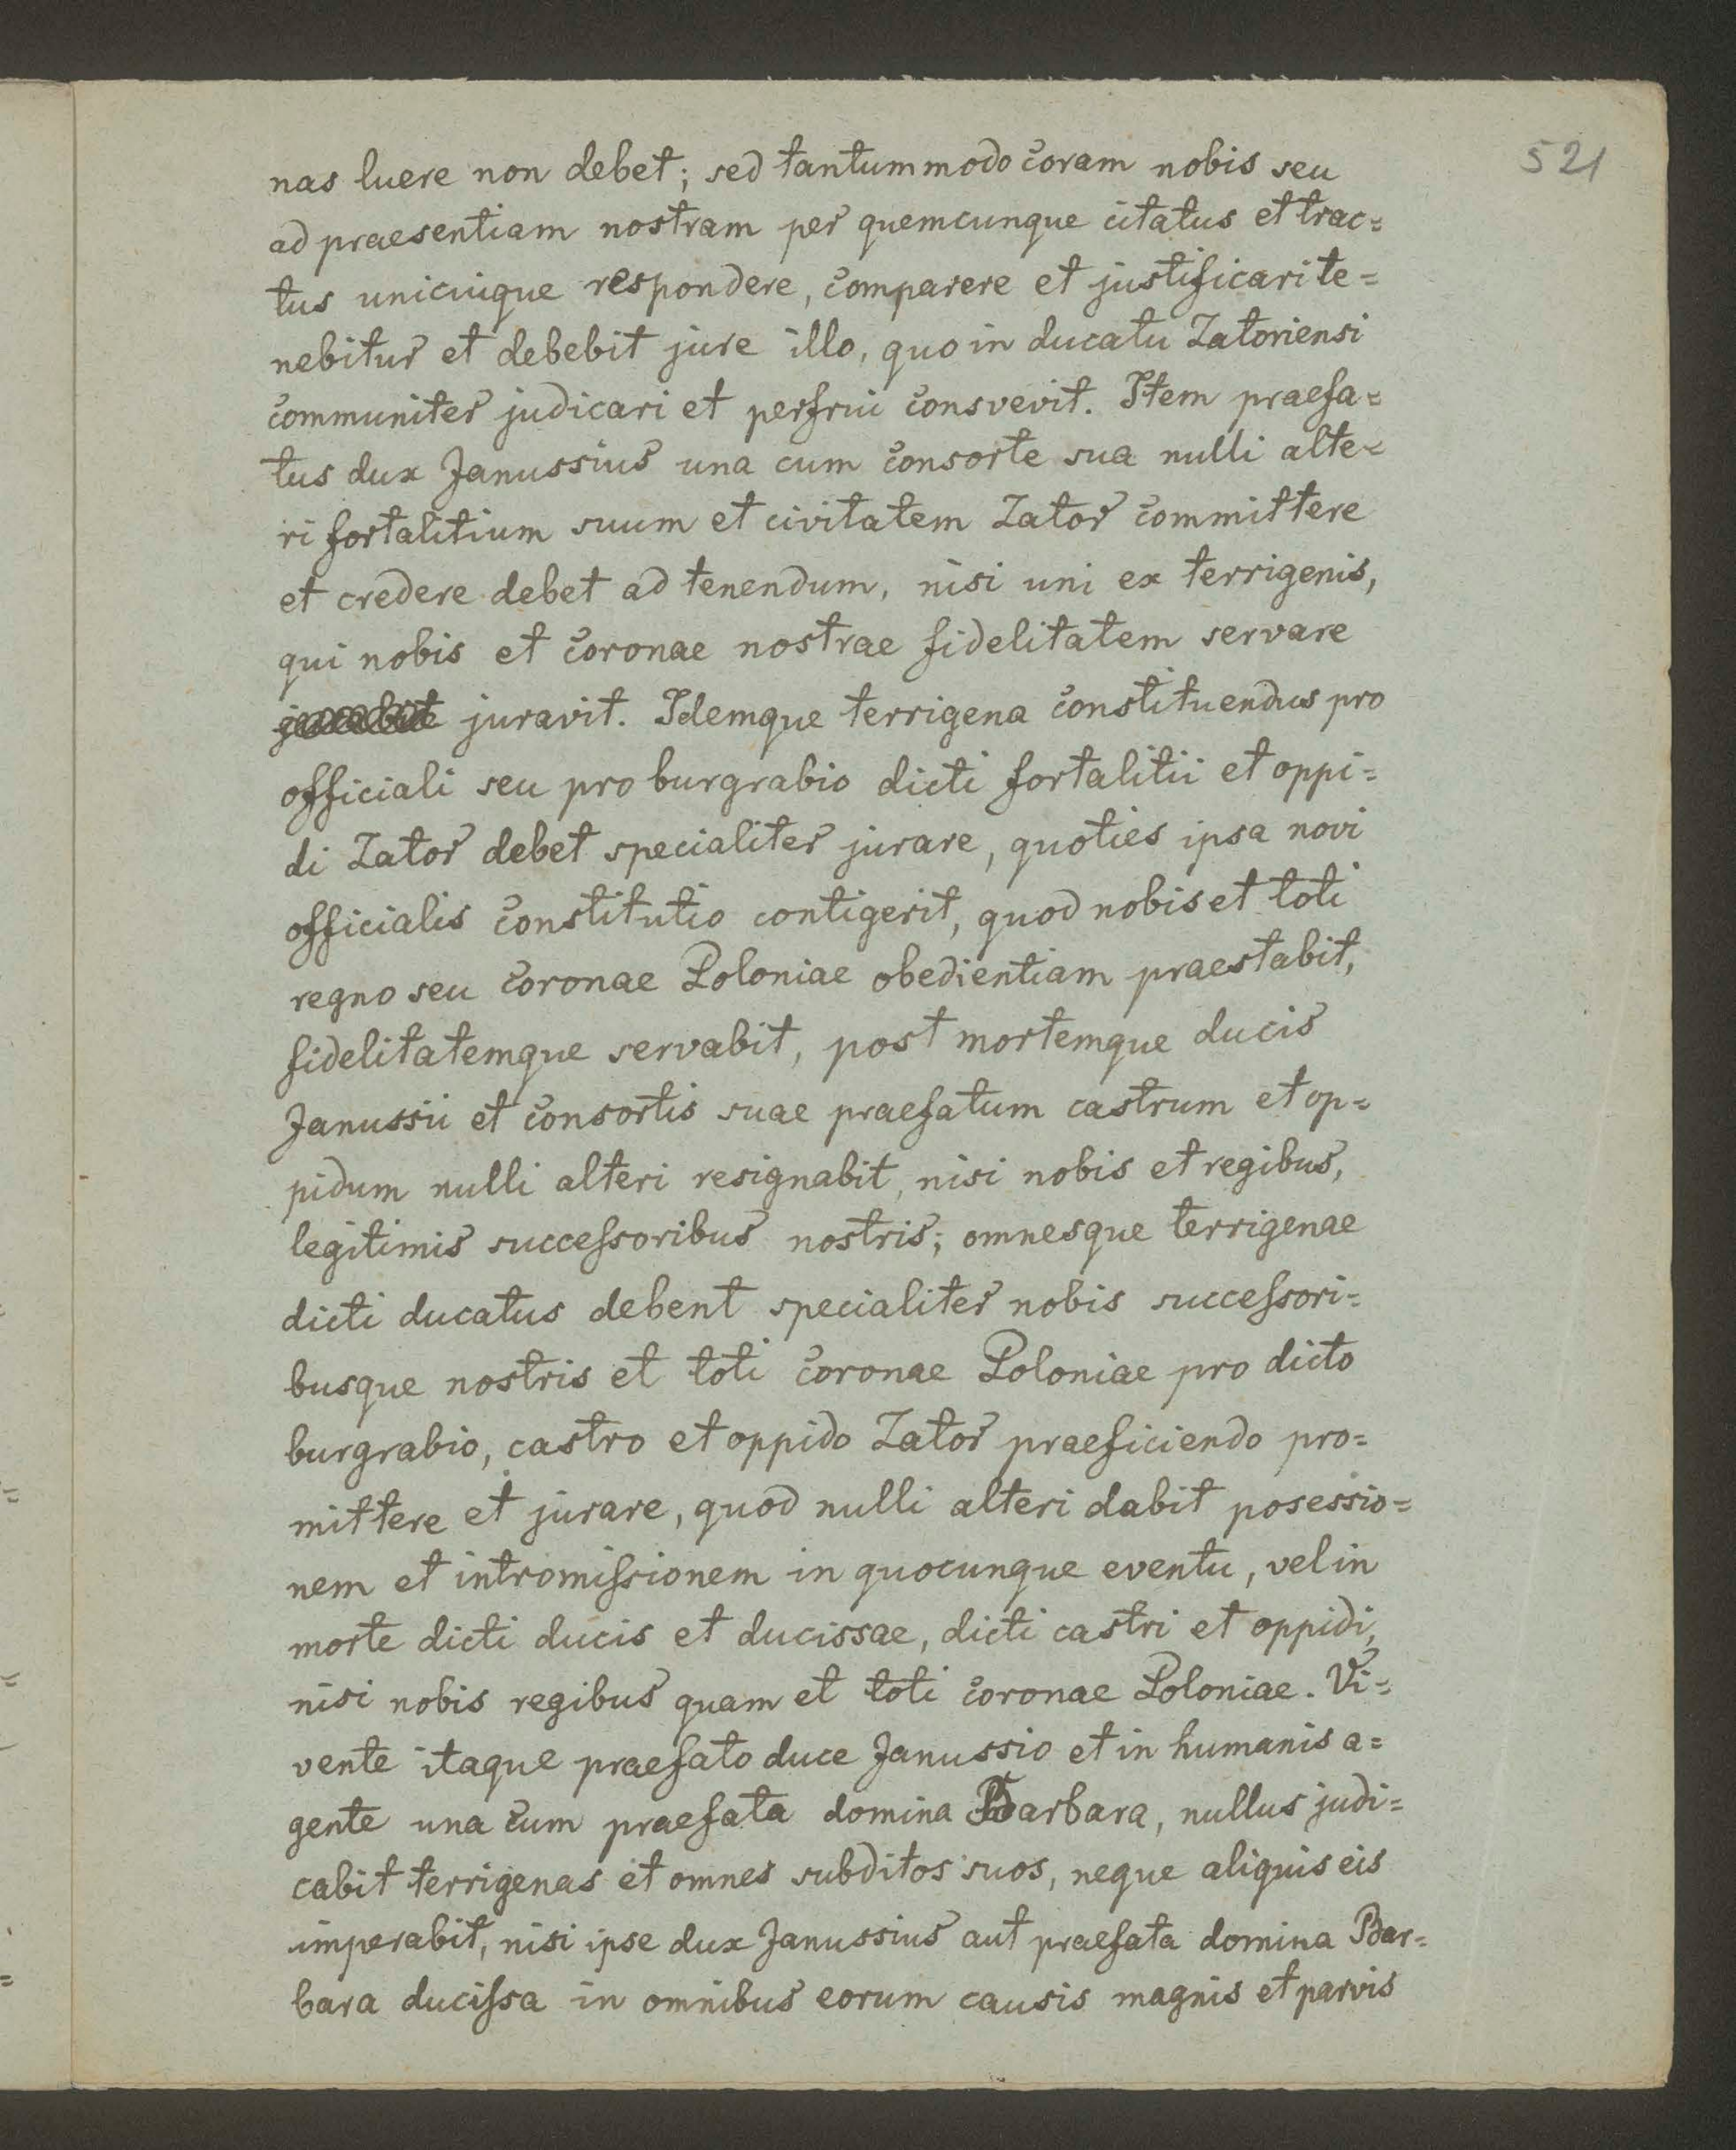 521
nas luere non debet; sed tantummodo coram nobis seu
ad praesentiam nostram per quemcunque citatus et trac=
tus unicuique respondere, comparere et justificari te=
nebitur et debebit jure illo, quo in ducatu Zatoriensi
communiter judicari et perfrui consvevit. Item praefa=
tus dux Janussius una cum consorte sua nulli alte=
ri fortalitium suum et civitatem Zator committere
et credere debet ad tenendum, nisi uni ex terrigenis,
qui nobis et coronae nostrae fidelitatem servare
juravit. Idemque terrigena constituendus pro
officiali seu pro burgrabio dicti fortalitii et oppi=
di Zator debet specialiter jurare, quoties ipsa novi
officialis constitutio contigerit, quod nobis et toti
regno seu coronae Poloniae obedientiam praestabit,
fidelitatemque servabit, post mortemque ducis
Janussii et consortis suae praefatum castrum et op=
pidum nulli alteri resignabit, nisi nobis et regibus,
legitimis succeſsoribus nostris; omnesque terrigenae
dicti ducatus debent specialiter nobis succeſsori=
busque nostris et toti coronae Poloniae pro dicto
burgrabio, castro et oppido Zator praeficiendo pro=
mittere et jurare, quod nulli alteri dabit posessio=
nem et intromiſsionem in quocunque eventu, vel in
morte dicti ducis et ducissae, dicti castri et oppidi,
nisi nobis regibus quam et toti coronae Poloniae. Vi=
vente itaque praefato duce Janussio et in humanis a=
gente una cum praefata domina Barbara, nullus judi=
cabit terrigenas et omnes subditos suos, neque aliquis eis
imperabit, nisi ipse dux Janussius aut praefata domina Bar=
bara duciſsa in omnibus eorum causis magnis et parvis